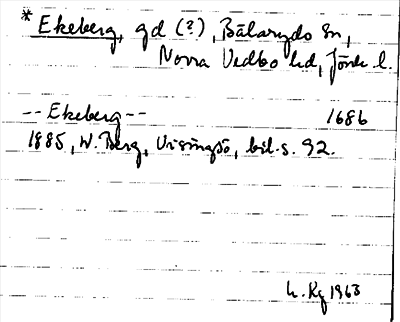 * Ekeberg, gd (?), Bälaryds sn,
Norra Vedbo hd, Jönk. l.
-- Ekeberg -- 1686
1885, W. Berg, Visingsö, bil. s. 92.
L. Kg 1963